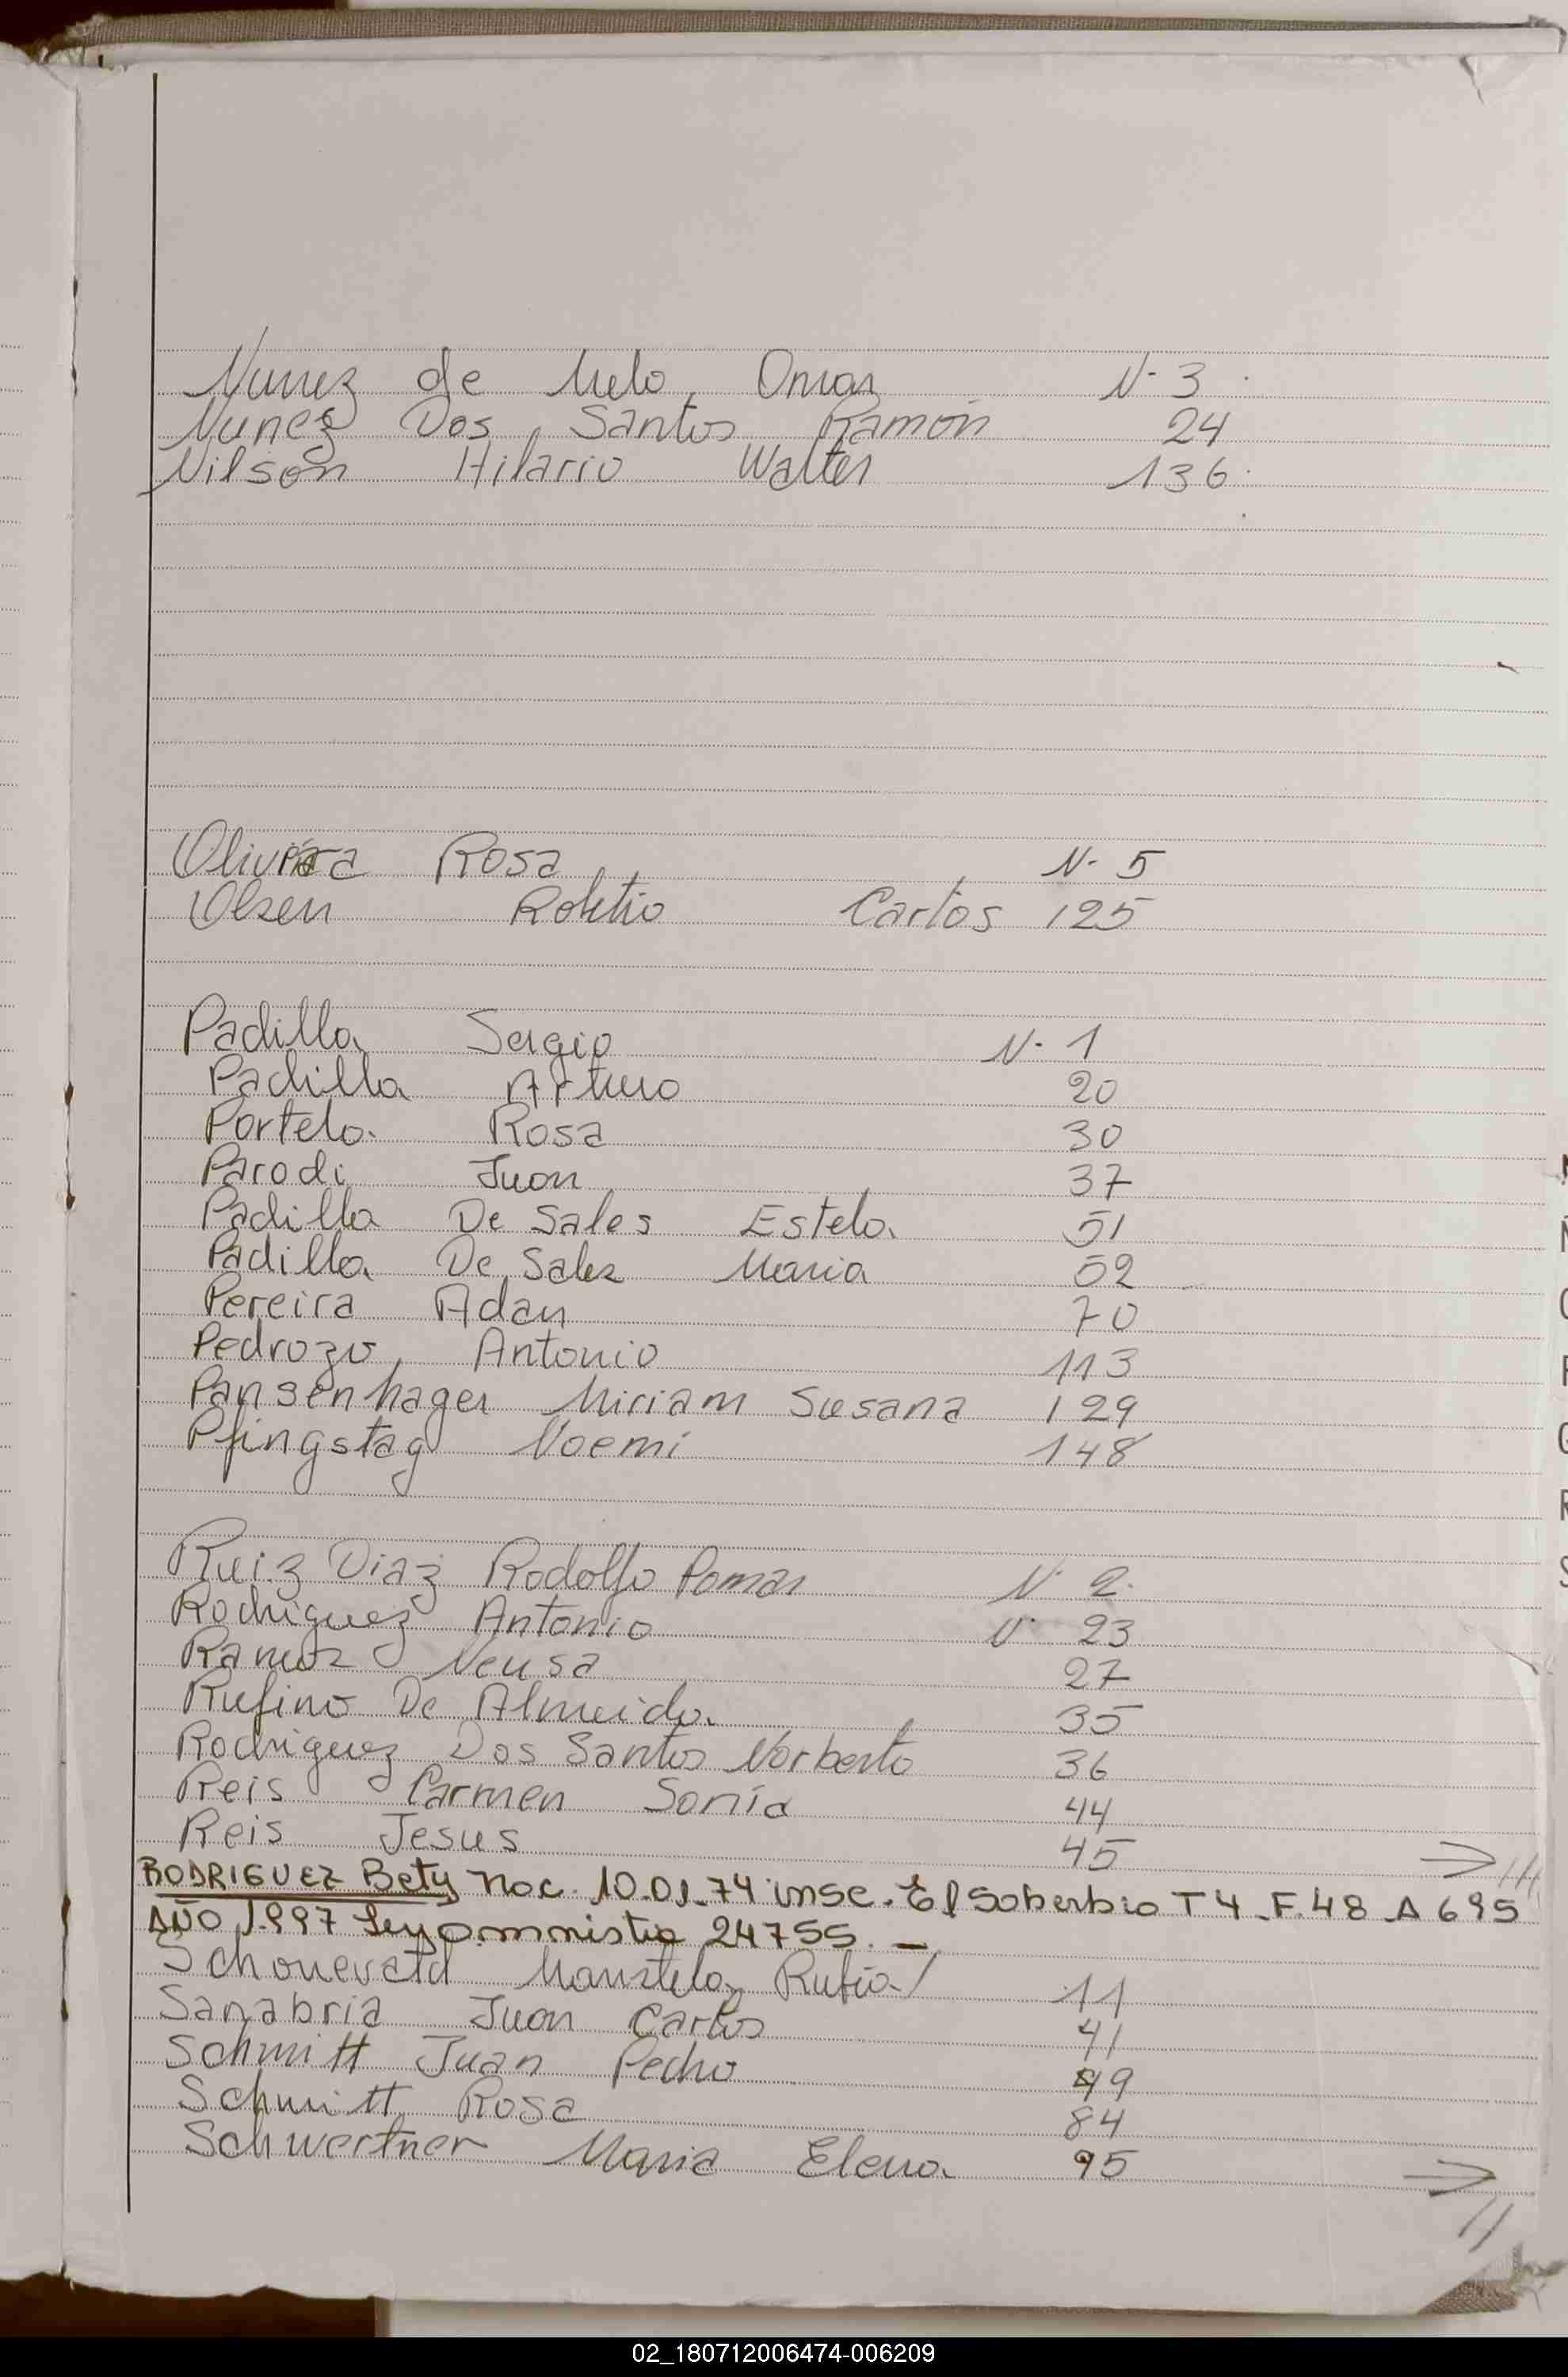 Nunez de Melo, Omar N- 3
Nunez Dos Santos Ramón 24
Nilson Hilario Walter 136
Olivera Rosa N- 5
Olsen Carlos 125
Padilla Sergio N- 1
Padilla Arturo 20
Portela Rosa 30
Parodi Juan 37
Padilla De Sales Estela 51
Padilla De Sales Maria 52
Pereira Adan 70
Pedrozo, Antonio 113
Pansenhager Miriam Susana 129
Pfingstag Noemi 148
Ruiz Diaz Rodolfo N- 2
Rodriguez Antonio N- 23
Ramos Neusa 27
Rufino De Almeida 35
Rodriguez Dos Santos Norberto 36
Reis Carmen Sonia 44
Reis Jesus 45
RODRIGUEZ Bety nac. 10.01.74 insc. El Soberbio T 4 F. 48 A 695
AÑO 1.997 Ley 24755. —
11
Sanabria Juan Carlos 41
Schmitt Juan Pedro 49
Schmitt Rosa 84
Schwertner Maria Elena 95
02_180712006474-006209